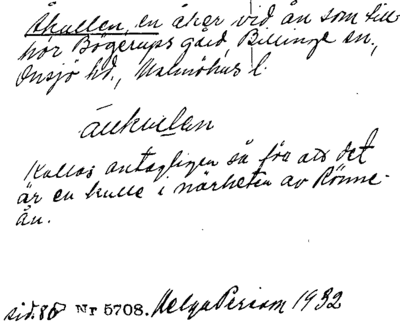 Åkullen, en åker vid ån som till-
hör Bögerups gård, Billinge sn.,
Onsjö hd., Malmöhus l.
åukulen
Kallas antagligen så för att det
är en kulle i närheten av Rönne-
ån.
sid. 88 Nr 5708. Helga Persson 1932